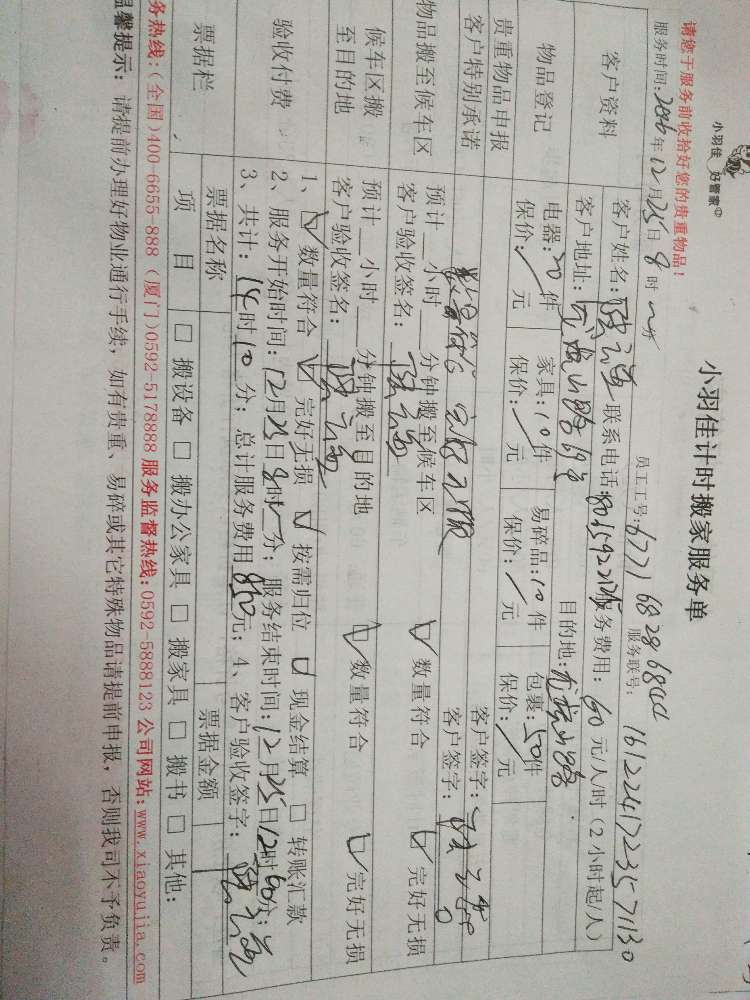 小羽佳 好管家
小羽佳计时搬家服务单
请您于服务前收拾好您的贵重物品！
员工工号: 6771 6828 6844 服务联号: 16122417235571130
服务时间: 2016年12月25日8时 分
客户资料 客户姓名: 联系电话: 服务费用: 60元/人/时(2小时起/人)
客户地址: 目的地:
物品登记 电器: 20件 家具: 10件 易碎品: 10件 包裹: 50件
保价: / 元 保价: / 元 保价: / 元 保价: / 元
贵重物品申报 客户签字:
客户特别承诺 数量符合 完好无损 客户签字:
物品搬至候车区 预计 小时 分钟搬至候车区 数量符合 完好无损
客户验收签名:
候车区搬至目的地 预计 小时 分钟搬至目的地 数量符合 完好无损
客户验收签名:
验收付费 1、 数量符合 完好无损 按需归位 现金结算 □ 转账汇款
2、服务开始时间: 12月25日8时 分; 服务结束时间: 12月25日12时60分;
3、共计: 14时10分; 总计服务费用 850元; 4、客户验收签字:
票据栏 票据名称 票据金额
项 目 □ 搬设备 □ 搬办公家具 □ 搬家具 □ 搬书 □ 其他:
务热线:(全国)400-6655-888 (厦门)0592-5178888 服务监督热线:0592-5888123 公司网站:www.xiaoyujia.com
温馨提示: 请提前办理好物业通行手续, 如有贵重、易碎或其它特殊物品请提前申报, 否则我司不予负责。